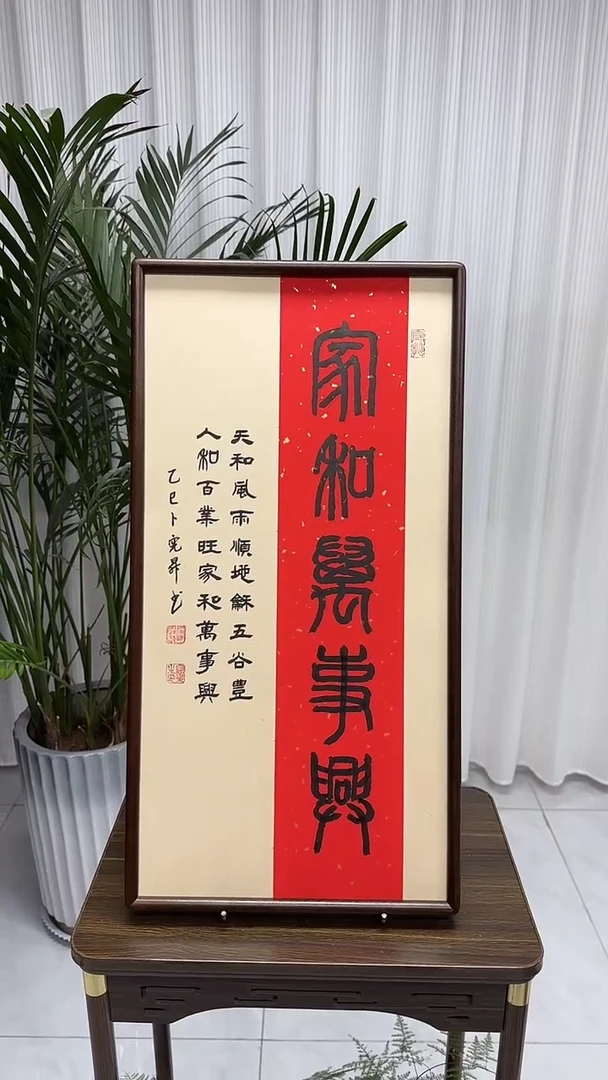 家和萬事興
天和風雨順地龢五谷豊
人和百業旺家和萬事興
乙巳卜宪昇书